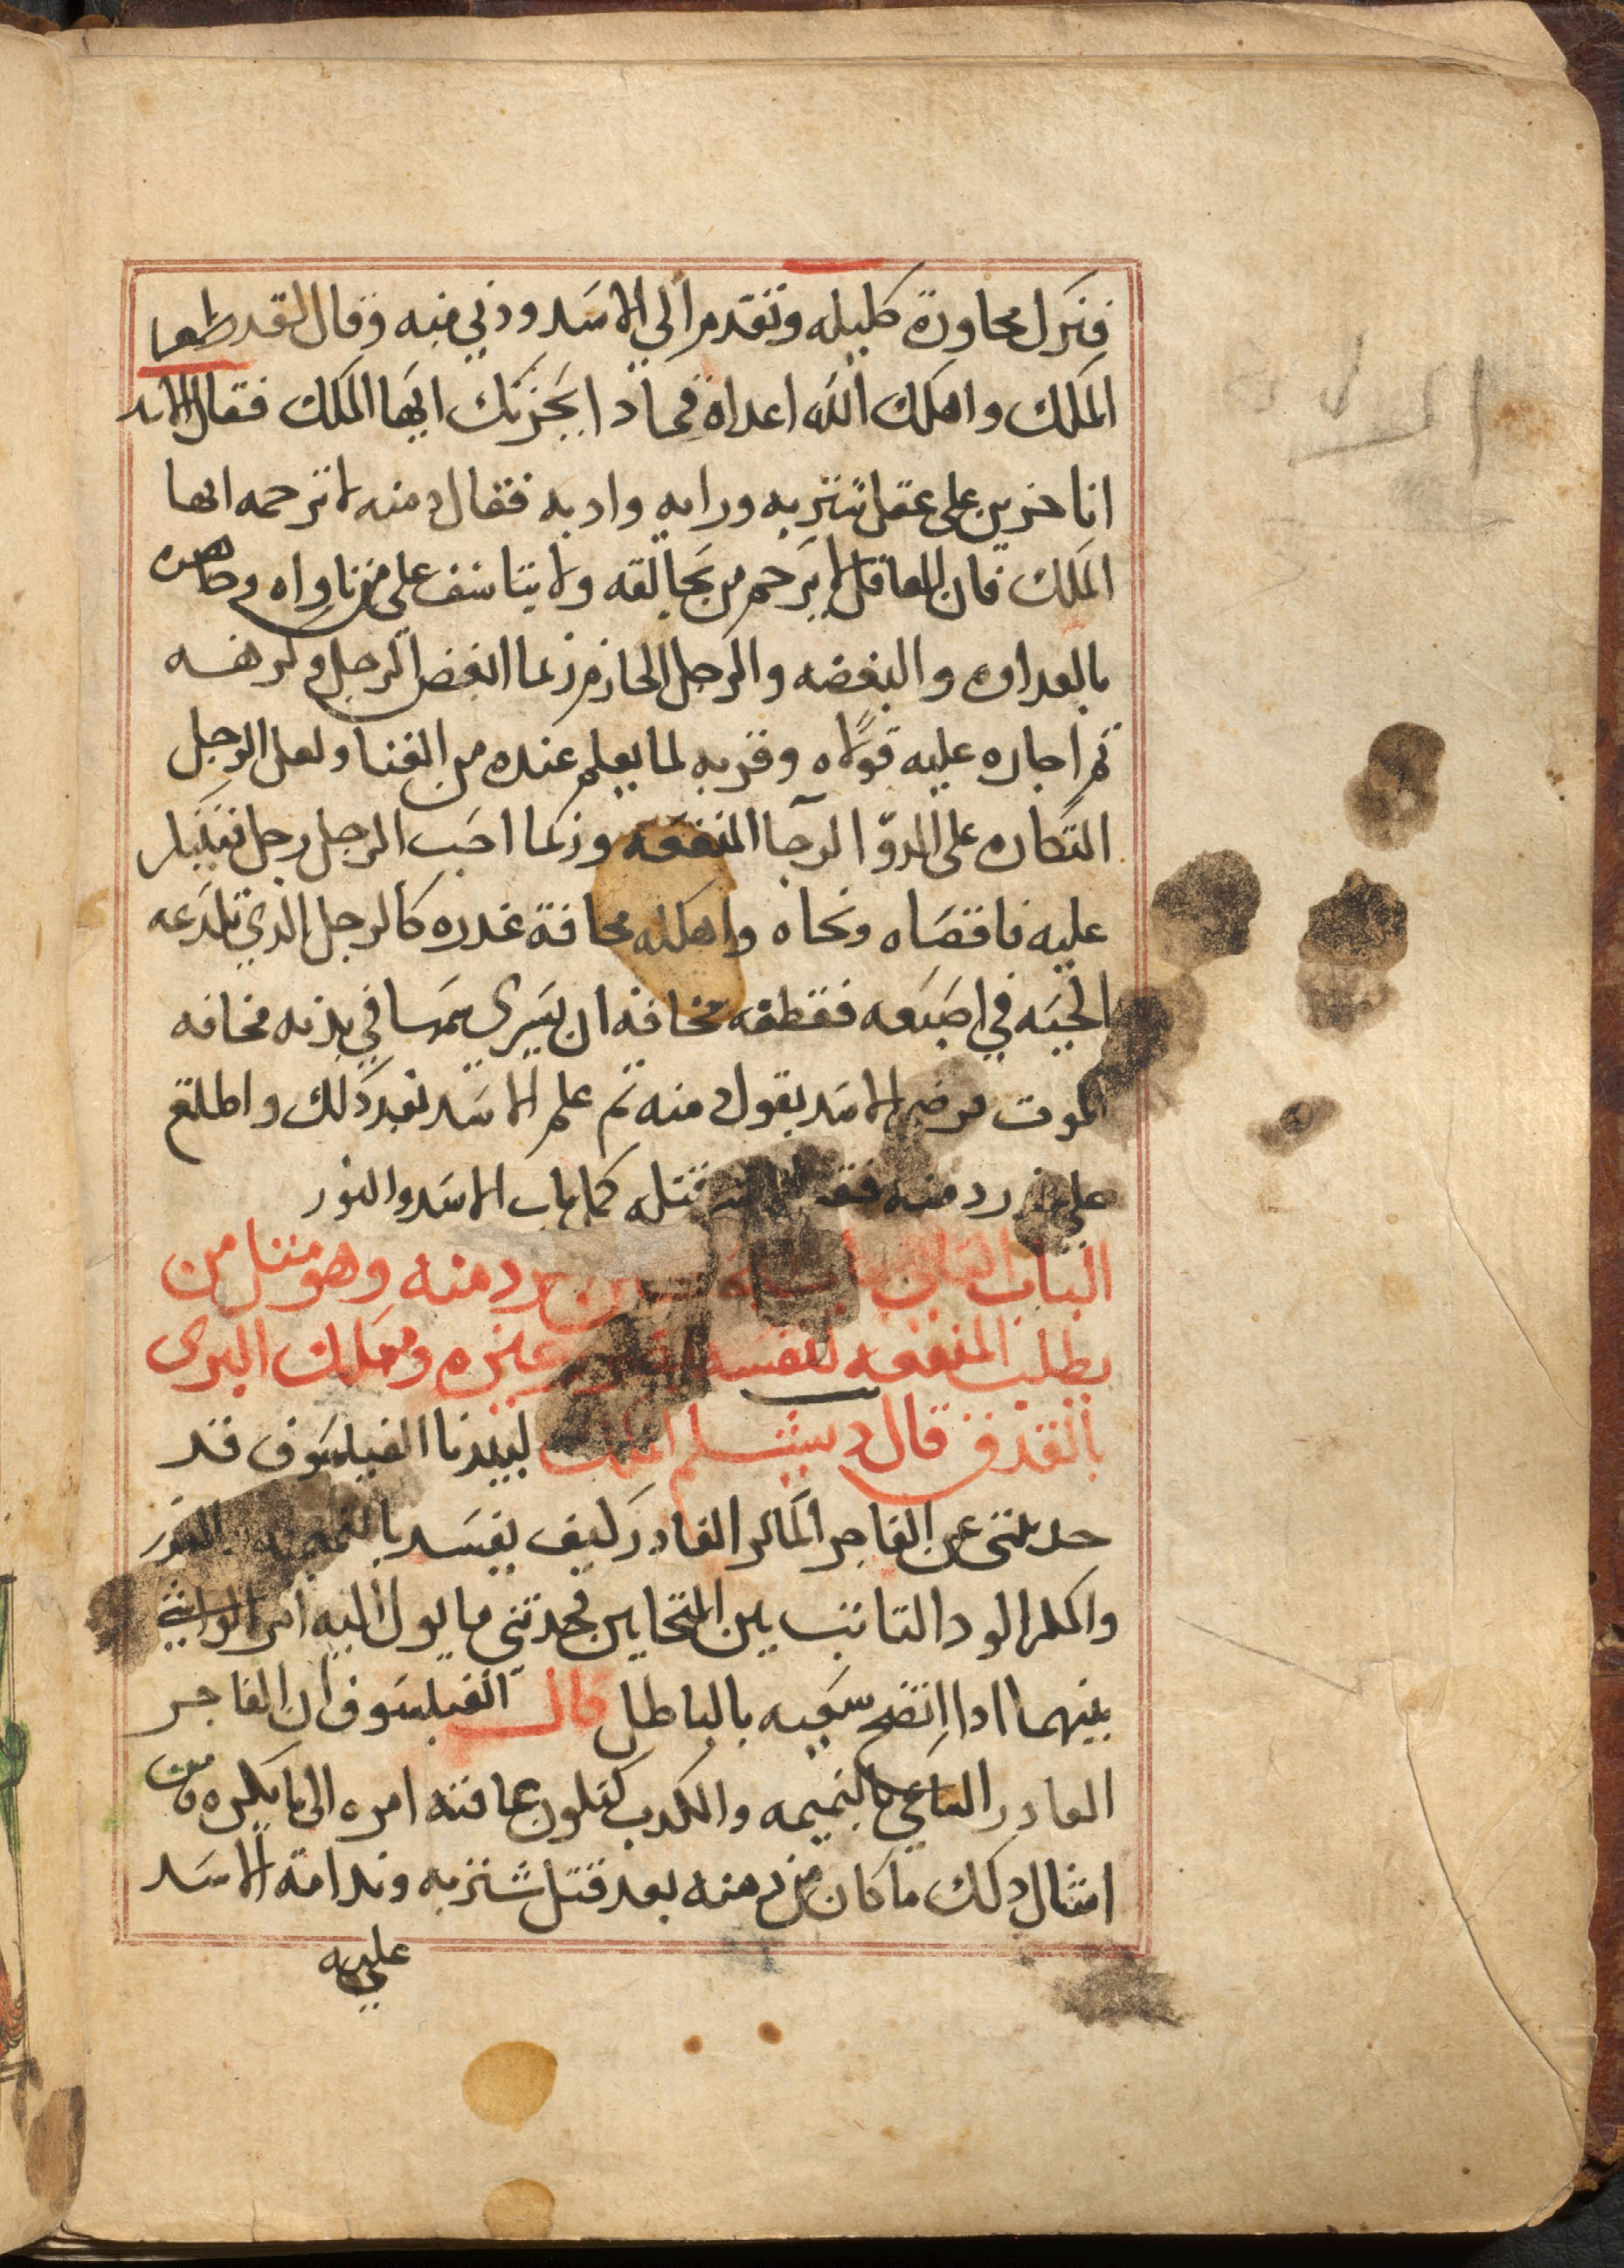 فترك محاورة كليله وتقدم الي الاسد ودني منه وقال لقد ظفر
الملك واهلك الله اعداه فماذا يحزنك ايها الملك فقال الاسد
انا حزين على عقل شتربه ورايه وادبه فقال دمنه لا ترحمه ايها
الملك فان العاقل لا يرحم من يخالفه ولا يتاسف على من ناواه
بالعداوه والبغضه والرجل الحازم ربما ابغض الرجل وكرهه
ثم اجاره عليه وقربه لما يعلم عنده من الغنا ولعل الرجل
المتكاره على الدوا لرجا المنفعه وربما احب الرجل رجل
عليه فاقصاه ونحاه واهلكه مخافة غدره كالرجل الذي تلدغه
الحيه في اصبعه فقطعه مخافه ان يسري سمها في بدنه مخافه
الموت فرضي الاسد بقول دمنه ثم علم الاسد بعد ذلك واطلع
على دمنه قتله كمل باب الاسد والثور
الباب دمنه وهو مثل من
يطلب المنفعه لنفسه غيره ومهلك البري
بالقذف قال دبشلم الملك لبيدبا الفيلسوف قد
حدثتني عن الفاجر الماكر الغادر كيف يفسد بالنميمه
والمكر الود الثابت بين المتحابين فحدثني ما يول اليه امر الواشي
بينهما اذا اتضح سعيه بالباطل قال الفيلسوف ان الفاجر
الغادر الساعي بالنميمه والكدب تكون عاقبته امره الى ما يكره ومن
امثال ذلك ما كان من دمنه بعد قتل شتربه وندامة الاسد
عليه